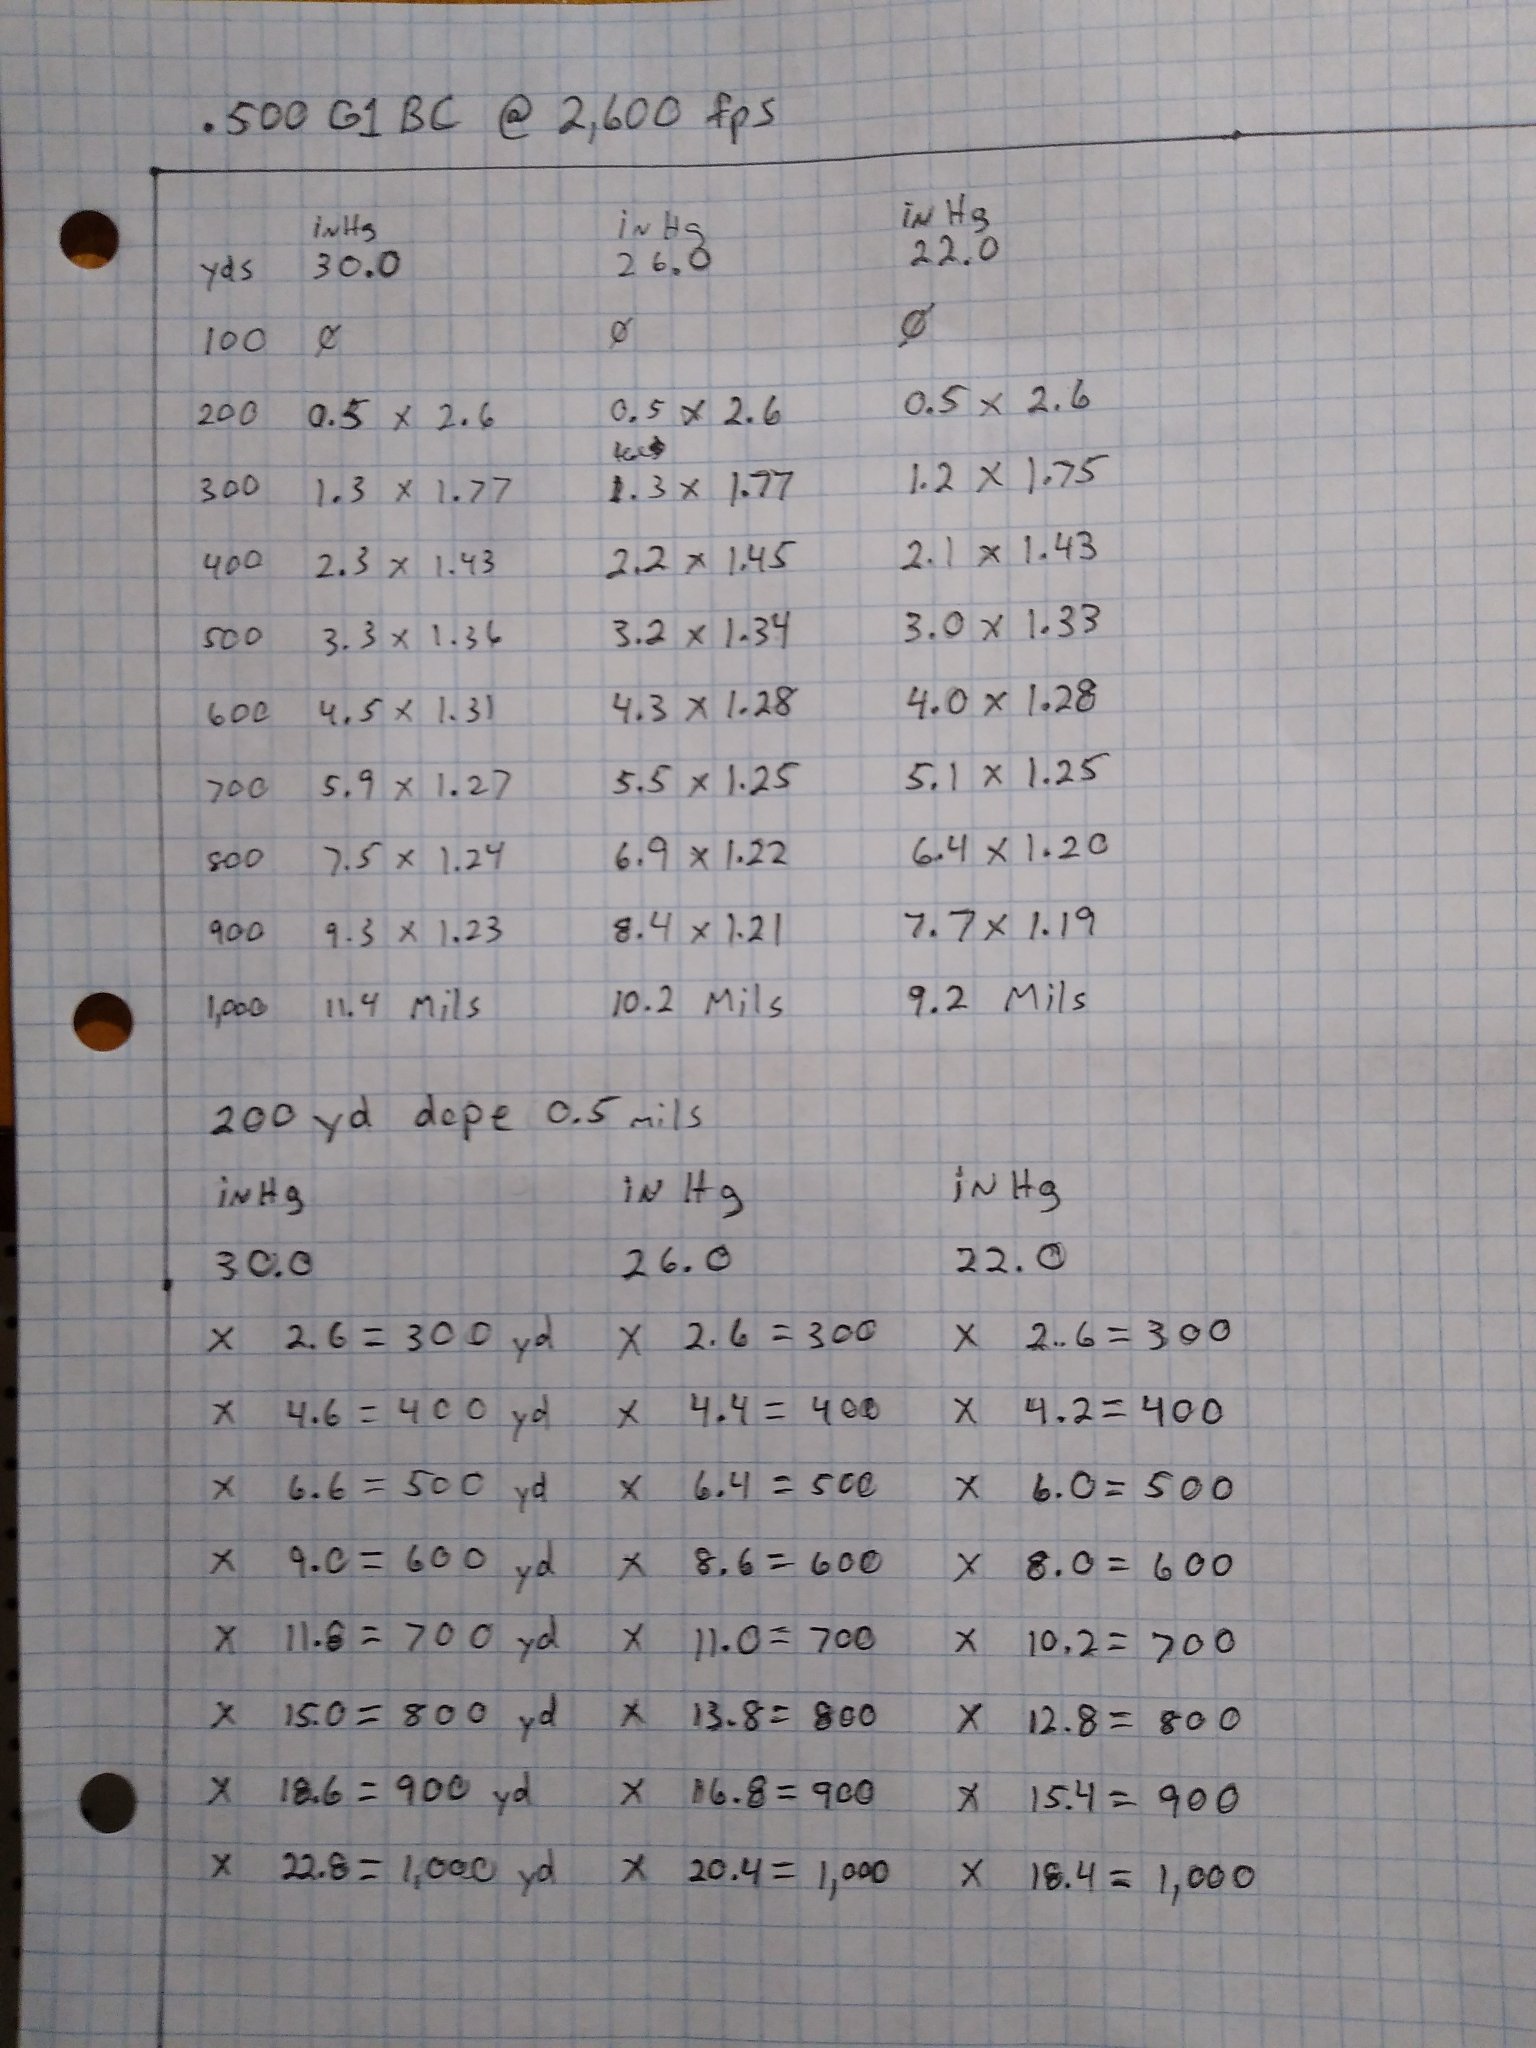 .500 G1 BC @ 2,600 fps
inHg inHg inHg
yds 30.0 26.0 22.0
100 Ø Ø Ø
200 0.5 x 2.6 0.5 x 2.6 0.5 x 2.6
300 1.3 x 1.77 1.3 x 1.77 1.2 x 1.75
400 2.3 x 1.43 2.2 x 1.45 2.1 x 1.43
500 3.3 x 1.36 3.2 x 1.34 3.0 x 1.33
600 4.5 x 1.31 4.3 x 1.28 4.0 x 1.28
700 5.9 x 1.27 5.5 x 1.25 5.1 x 1.25
800 7.5 x 1.24 6.9 x 1.22 6.4 x 1.20
900 9.3 x 1.23 8.4 x 1.21 7.7 x 1.19
1,000 11.4 Mils 10.2 Mils 9.2 Mils
200 yd dope 0.5 mils
inHg inHg inHg
30.0 26.0 22.0
x 2.6 = 300 yd x 2.6 = 300 x 2.6 = 300
x 4.6 = 400 yd x 4.4 = 400 x 4.2 = 400
x 6.6 = 500 yd x 6.4 = 500 x 6.0 = 500
x 9.0 = 600 yd x 8.6 = 600 x 8.0 = 600
x 11.8 = 700 yd x 11.0 = 700 x 10.2 = 700
x 15.0 = 800 yd x 13.8 = 800 x 12.8 = 800
x 18.6 = 900 yd x 16.8 = 900 x 15.4 = 900
x 22.8 = 1,000 yd x 20.4 = 1,000 x 18.4 = 1,000